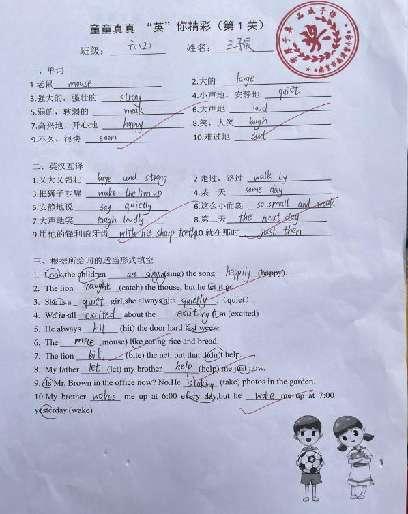 童童真真 “英”你精彩（第1关）
班级： 六(2) 姓名：
一、单词
1.老鼠 mouse 2.大的 large
3.强大的，强壮的 strong 4.小声地，安静地 quiet
5.弱的，软弱的 weak 6.大声地 loud
7.高兴地，开心地 happy 8.笑，大笑 laugh
9.不久，很快 soon 10.难过地 sad
二、英汉互译
1.又大又强壮 large and strong 2.走过，路过 walk by
3.把狮子吵醒 wake the lion up 4. 天 some day
5.安静地说 say quietly 6.这么小而弱 so small and weak
7.大声地笑 laugh loudly 8.第二天 the next day
9.用他的锋利的牙齿 with his sharp teeth 10.就在那时 just then
三、根据所给词的适当形式填空
1. Look, the children are sing (sing) the song happily (happy).
2. The lion caught (catch) the mouse, but he let it go.
3. She is a quiet girl, she always quietly (quiet)
4. We're all excited about the exciting (excited)
5. He always hit (hit) the door hard last week.
6. The mice (mouse) like eating rice and bread.
7. The lion bit (bite) the net, but that didn't help.
8. My father let (let) my brother help (help) me just
9. Is Mr. Brown in the office now? No. He (take) photos in the garden.
10. My brother wakes me up at 6:00 every day, but he woke me up at 7:00
yesterday (wake)